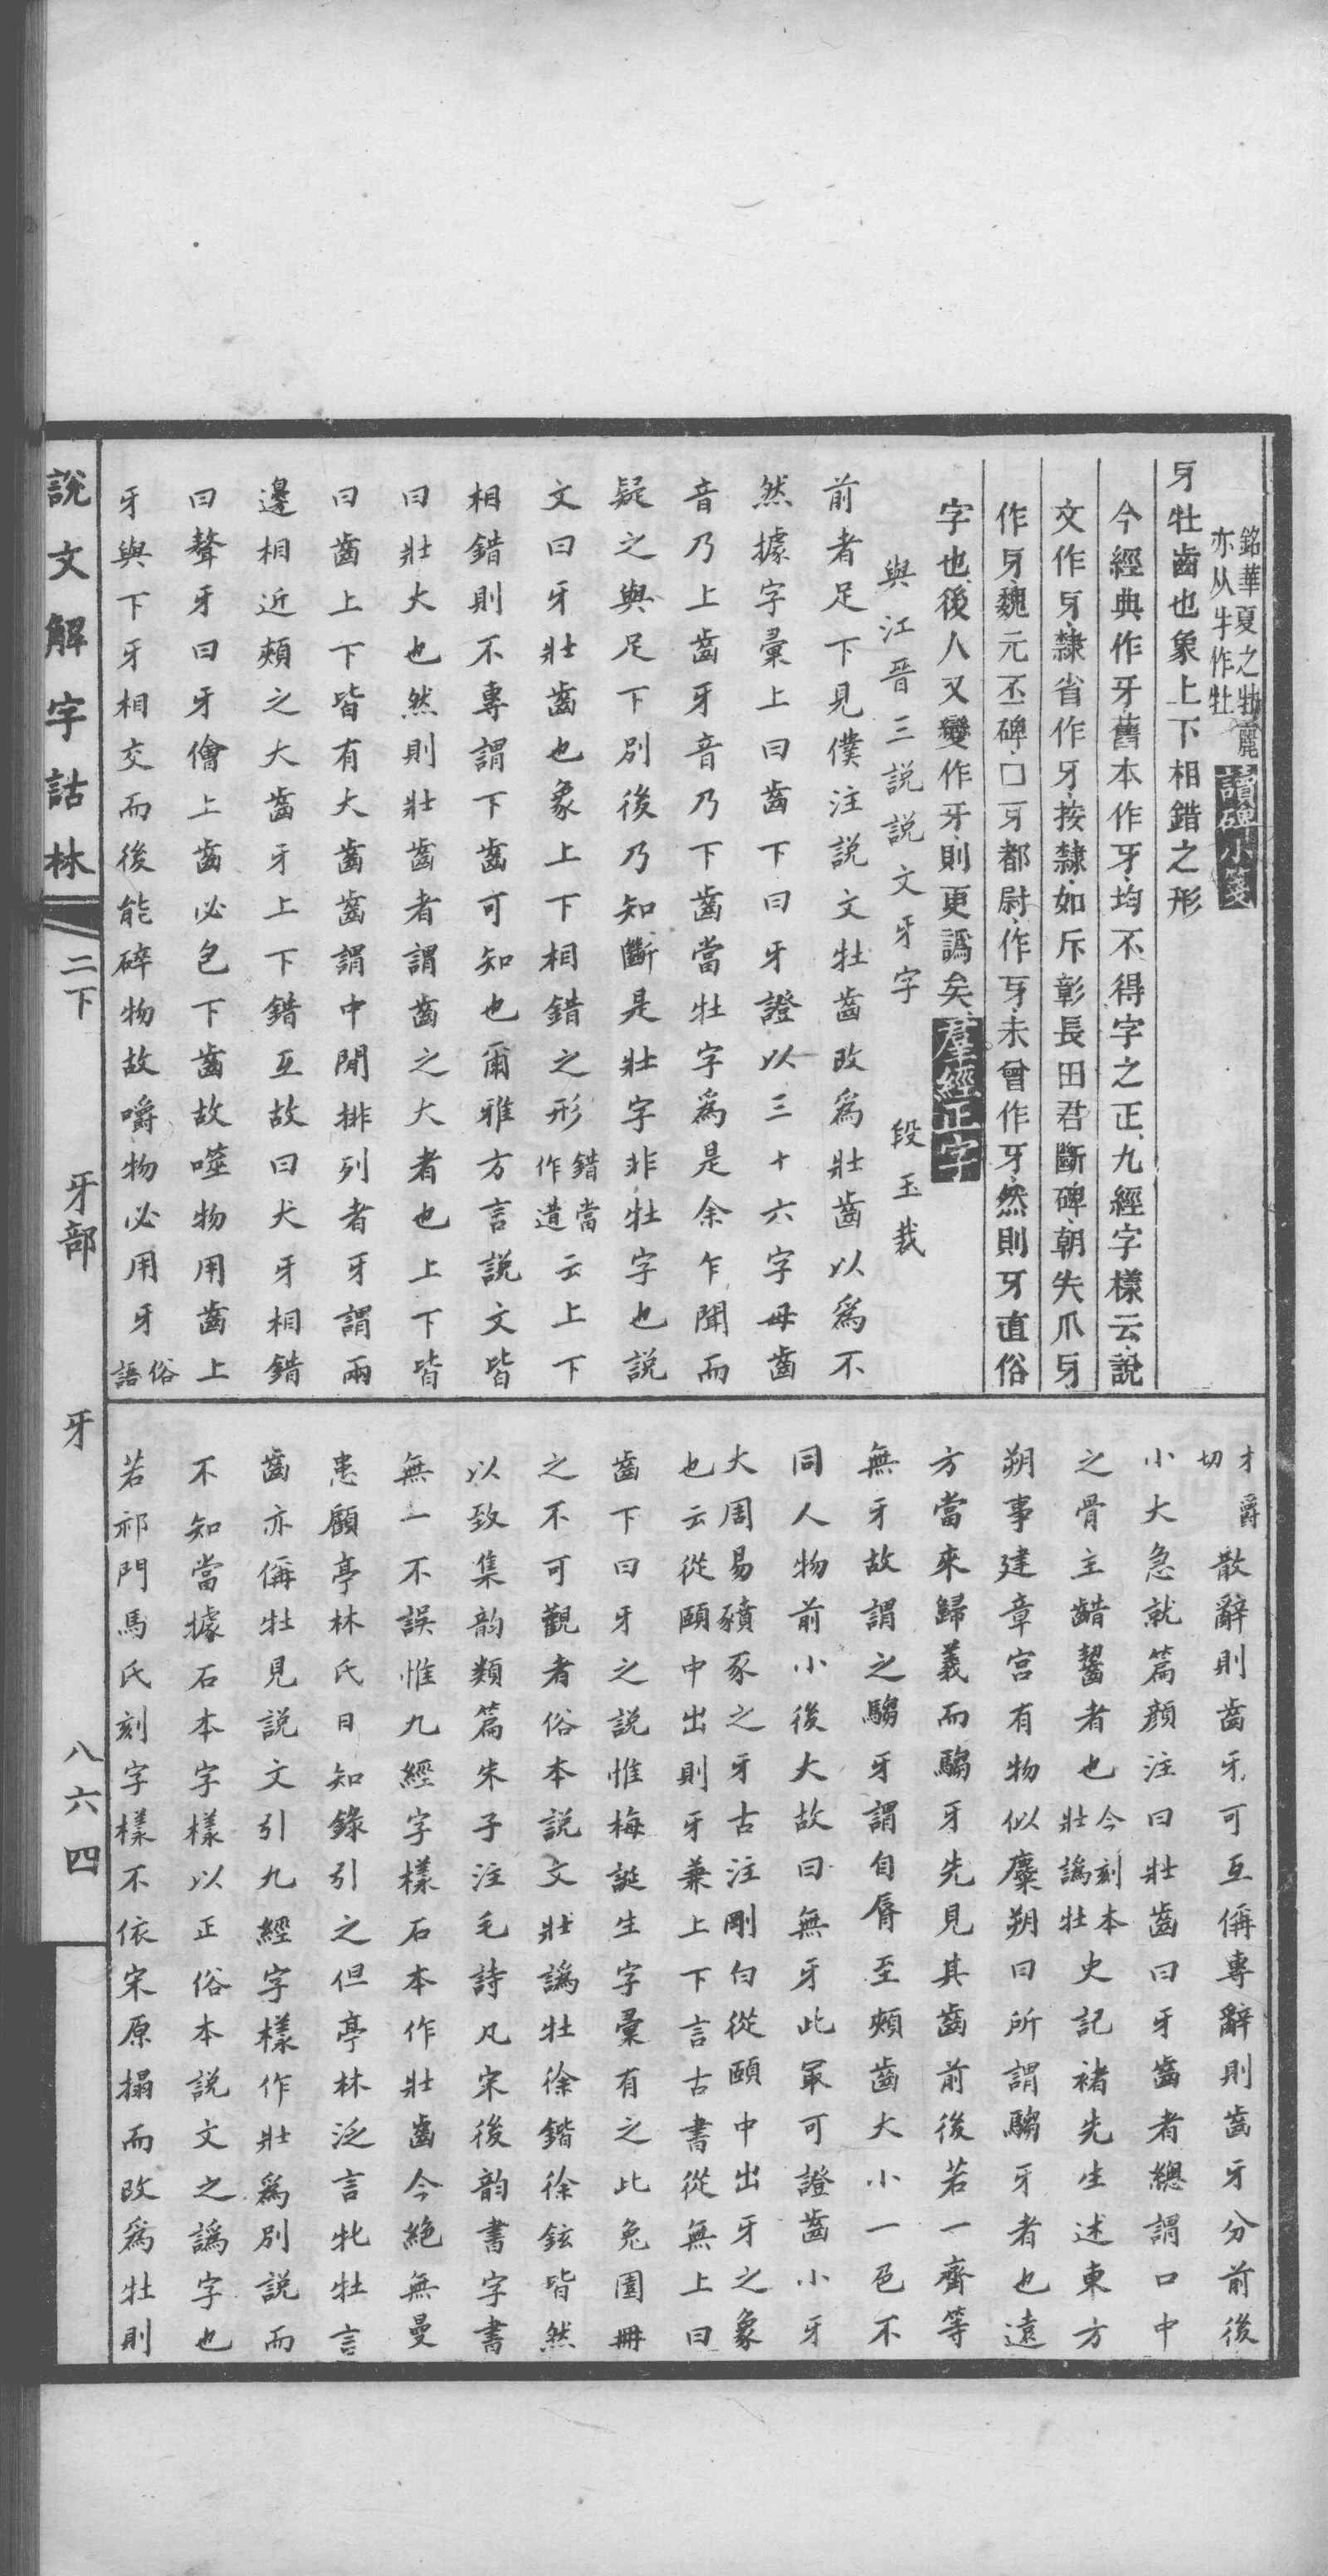 銘華夏之牡麗
亦从牛作牡
讀碑小箋
牙牡齒也象上下相錯之形
今經典作牙舊本作牙均不得字之正九經字樣云說
文作牙隸省作牙按隸如斥彰長田君斷碑朝失爪牙
作牙魏元丕碑囗牙都尉作牙未曾作牙然則牙直俗
字也後人又變作牙則更譌矣羣經正字
與江晋三説説文牙字　段玉裁
前者足下見僕注説文牡齒改爲壯齒以爲不
然據字彙上曰齒下曰牙證以三十六字母齒
音乃上齒牙音乃下齒當牡字爲是余乍聞而
疑之與足下別後乃知斷是壯字非牡字也説
文曰牙壯齒也象上下相錯之形錯當作䢒云上下
相錯則不專謂下齒可知也爾雅方言説文皆
曰壯大也然則壯齒者謂齒之大者也上下皆
曰齒上下皆有大齒齒謂中閒排列者牙謂兩
邊相近頰之大齒牙上下錯互故曰犬牙相錯
曰聱牙曰牙儈上齒必包下齒故噬物用齒上
牙與下牙相交而後能碎物故嚼物必用牙俗語
才爵切散辭則齒牙可互偁專辭則齒牙分前後
小大急就篇顔注曰壯齒曰牙齒者緫謂口中
之骨主齰齧者也今刻本壯譌牡史記褚先生述東方
朔事建章宫有物似麋朔曰所謂騶牙者也遠
方當來歸義而騶牙先見其齒前後若一齊等
無牙故謂之騶牙謂自脣至頰齒大小一色不
同人物前小後大故曰無牙此冣可證齒小牙
大周易豶豕之牙古注剛白從頤中出牙之象
也云從頤中出則牙兼上下言古書從無上曰
齒下曰牙之説惟梅誕生字彙有之此兔園冊
之不可觀者俗本説文壯譌牡徐鍇徐鉉皆然
以致集韵類篇朱子注毛詩凡宋後韵書字書
無一不誤惟九經字樣石本作壯齒今絶無曼
患顧亭林氏日知錄引之但亭林泛言牝牡言
齒亦偁牡見説文引九經字樣作壯爲別説而
不知當據石本字樣以正俗本説文之譌字也
若祁門馬氏刻字樣不依宋原搨而改爲牡則
說文解字詁林　二下　牙部　牙　八六四